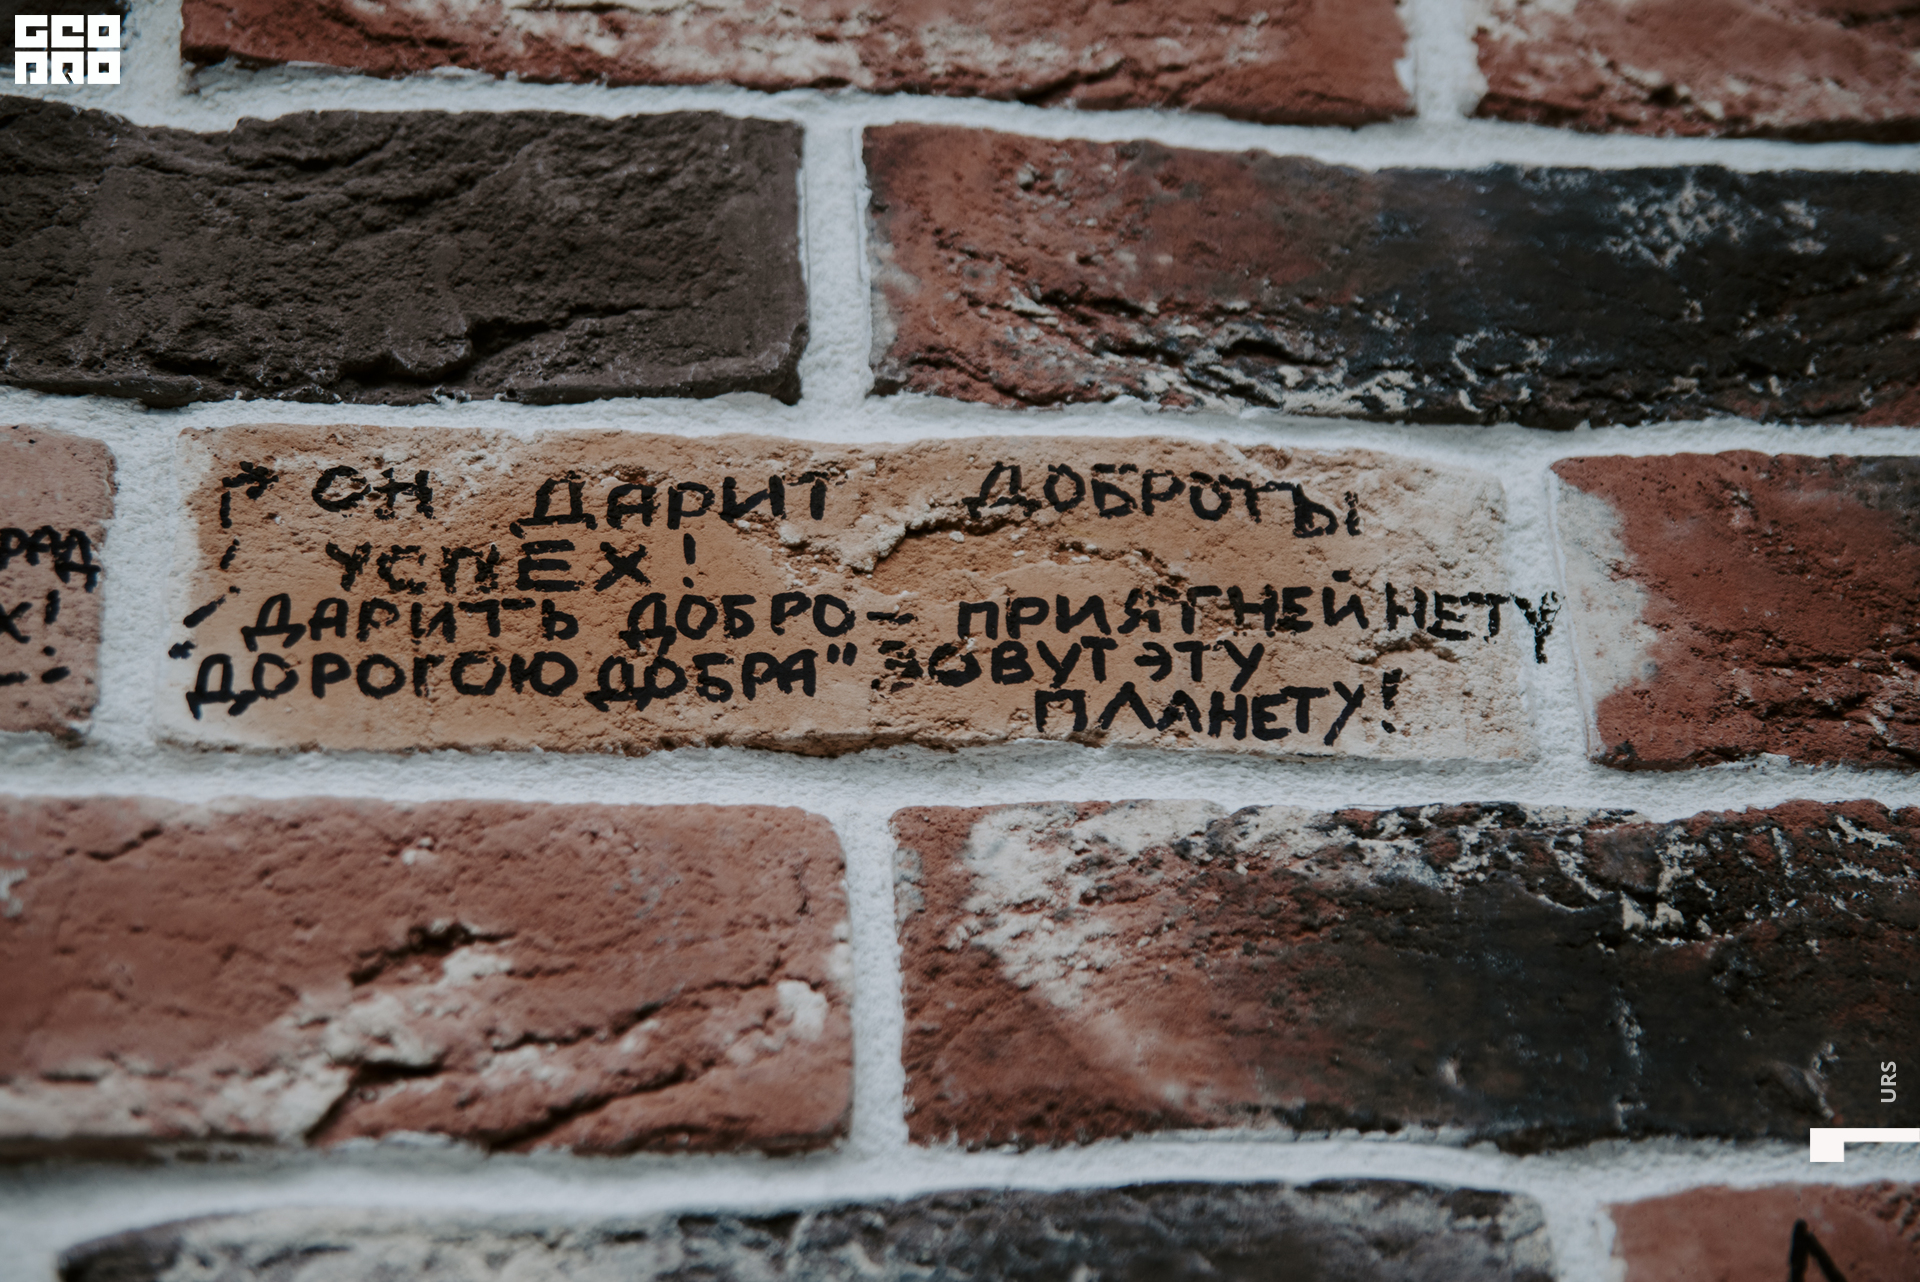 GEO
PRO
ОН ДАРИТ ДОБРОТЫ
УСПЕХ!
ДАРИТЬ ДОБРО — ПРИЯТНЕЙ НЕТУ
"ДОРОГОЮ ДОБРА" ЗОВУТ ЭТУ
ПЛАНЕТУ!
РАД
Х!
URS